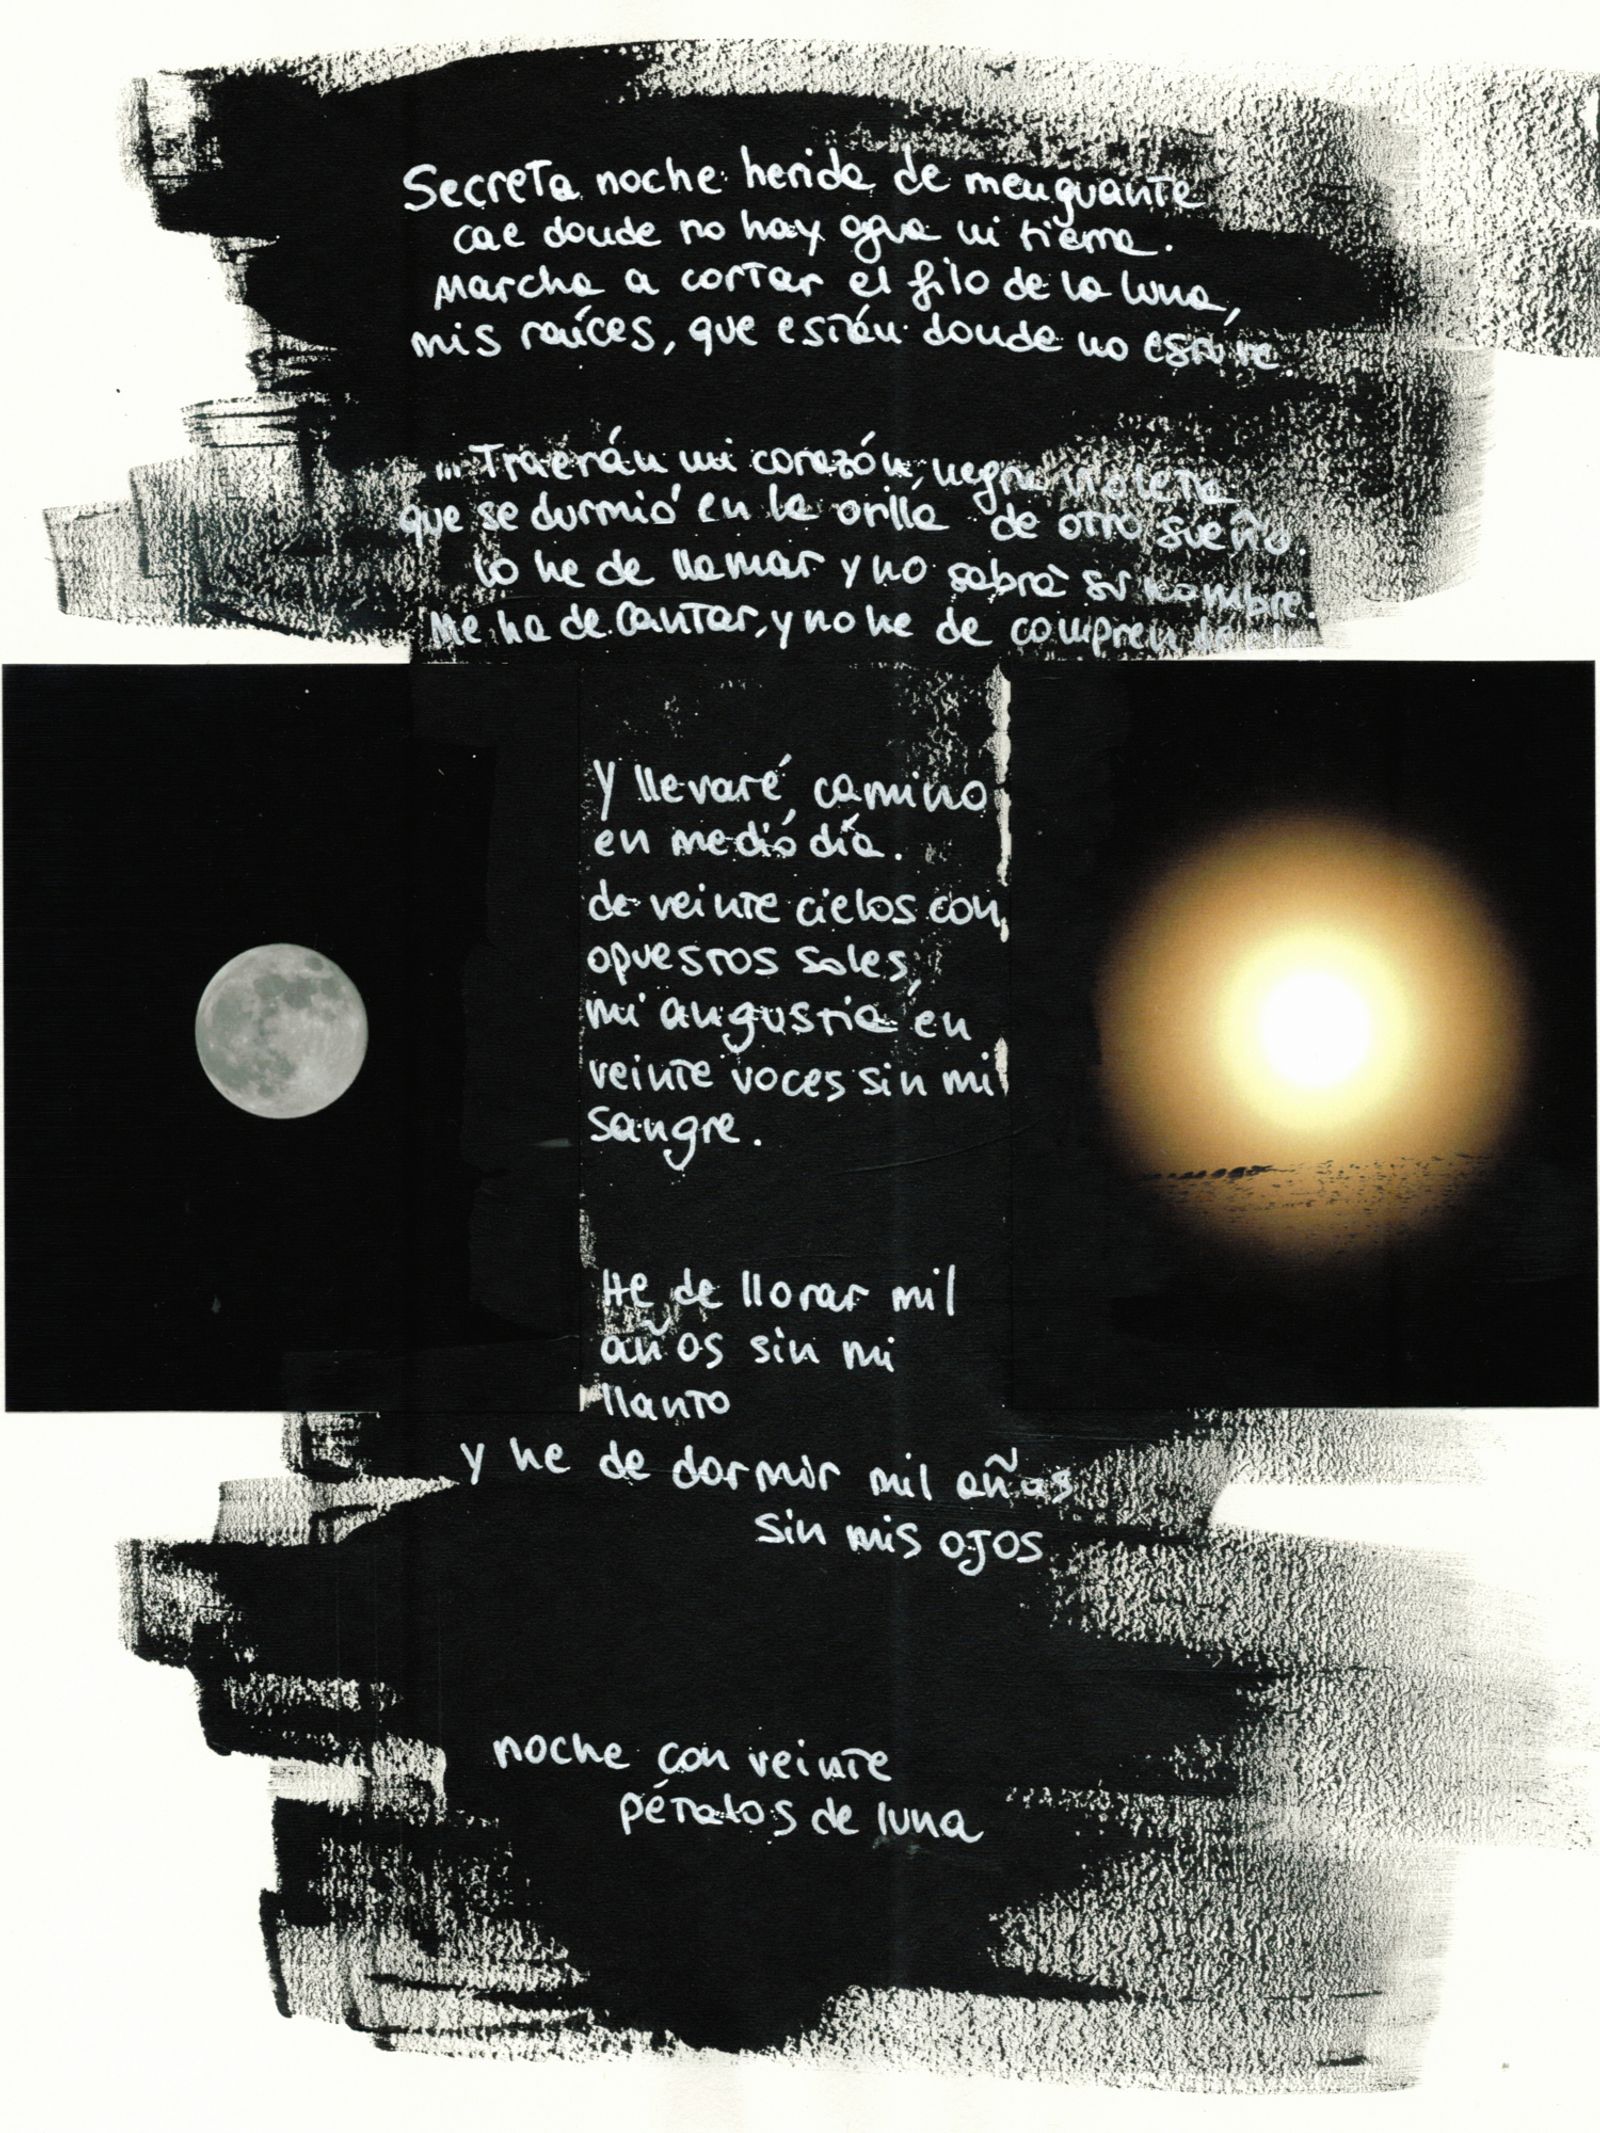 Secreta noche herida de menguante
cae donde no hay agua ni tierra.
Marcha a cortar el filo de la luna,
mis raíces, que están donde no estuve.
... Traerán mi corazón, negra violeta
que se durmió en la orilla de otro sueño.
lo he de llamar y no sabrá su nombre.
Me ha de cantar, y no he de
Y llevaré, camino
en medio día.
de veinte cielos con
opuestos soles,
mi angustia en
veinte voces sin mi
sangre.
He de llorar mil
años sin mi
llanto
y he de dormir mil años
sin mis ojos
noche con veinte
pétalos de luna